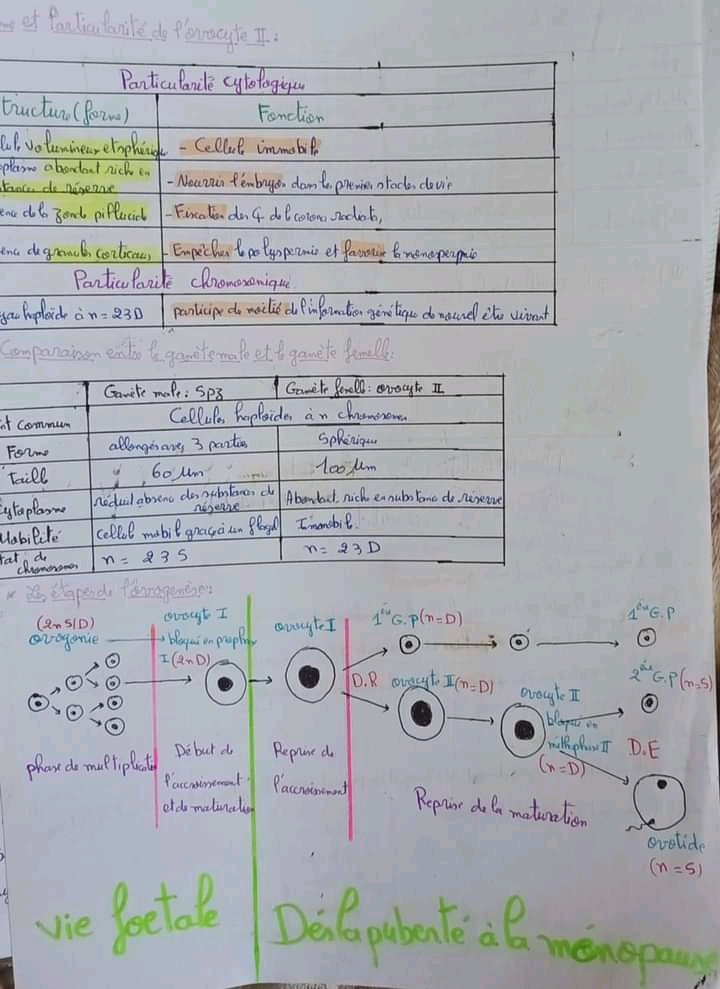 et Particularité de l'ovocyte II :
Particularité cytologique
tructure (forme) Fonction
volumineux et sphérique - Cellule immobile
plasme abondant riche en
tances de réserve - Nourrir l'embryon dans le premier stades de vie
ence de la zone pellucid - Fixation des de la corona radiata,
ence de granules corticaux - Empêcher la polyspermie et favorise la monospermie
Particularité chromosomique
yau haploïde à n = 23D participe de moitié de l'information génétique de nouvel être vivant
Comparaison entre le gamète male et le gamète femelle:
Gamète male : Spz Gamète femelle : ovocyte II
nt commun Cellules haploïdes à n chromosomes
Forme allongés avec 3 parties Sphérique
Taille 60 µm 100 µm
Cytoplasme réduit absence des substances de réserve Abondant, riche en substance de réserve
Mobilité cellule mobile grâce à un flagelle Immobile.
tat de chromosomes n = 23S n = 23D
* Les étapes de l'ovogenèse:
(2n S/D)
ovogonie
ovocyte I
bloqué en prophase
I (2nD)
ovocyte I
1ère G.P (n=D)
1ère G.P
D.R
ovocyte II (n=D)
ovocyte II
bloqué en
métaphase II
(n=D)
2ème G.P (n=S)
D.E
ovotide
(n=S)
phase de multiplication
Début de
l'accroissement
et de maturation
Reprise de
l'accroissement
Reprise de la maturation
vie foetale
Dés la puberté à la ménopause